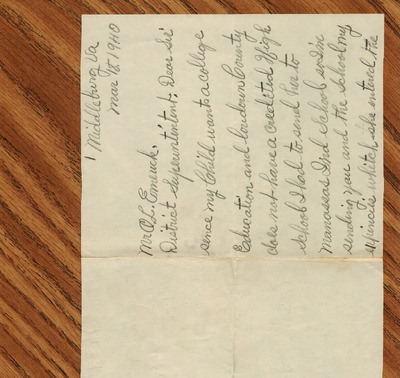 Middleburg Va
Mar 8 1940
Mr O.L. Emerick.
District Superintentent: Dear Sir
since my Child want a college
Education and loudoun County
does not have a credited High
School I had to send her to
Manassas Ind School so I'm
sending you and the School my
which she entered, the